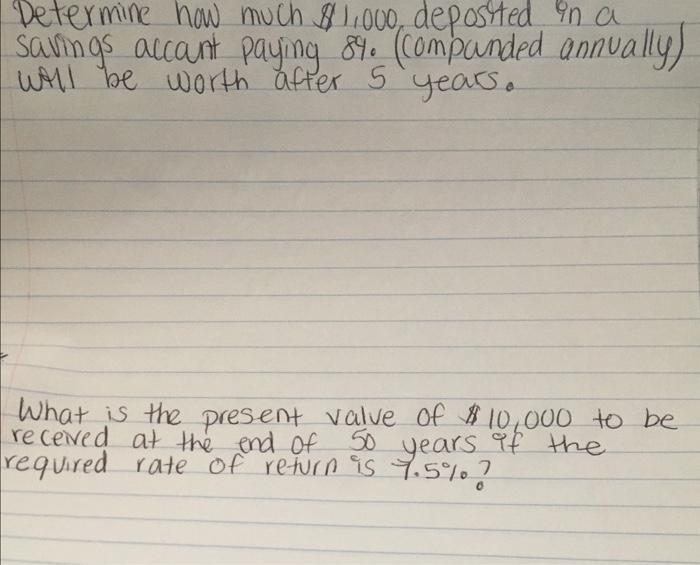 Determine how much $1,000, deposited in a
savings accant paying 8%. (compunded annually)
will be worth after 5 years.
What is the present value of $10,000 to be
received at the end of 50 years if the
required rate of return is 7.5%?